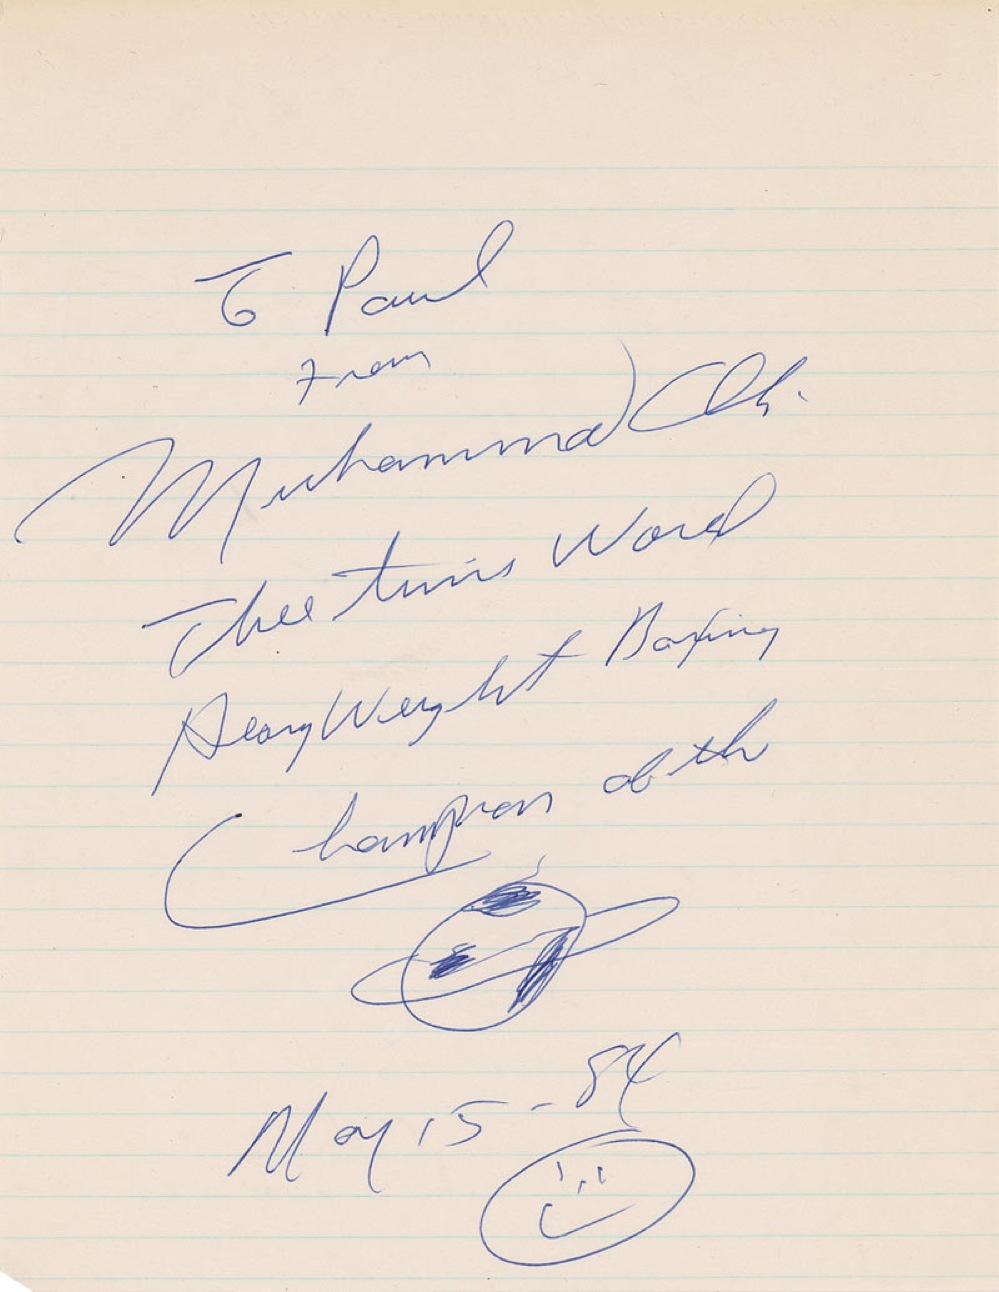 To Paul
From
Muhammad Ali
Thee tims World
HeavyWeight Boxing
Champion of the
May 15-84